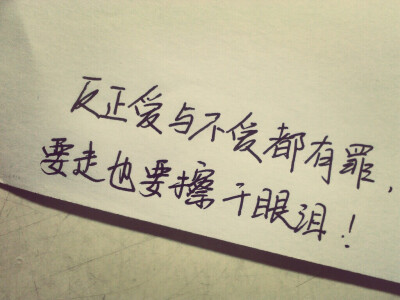 反正爱与不爱都有罪,
要走也要擦干眼泪!